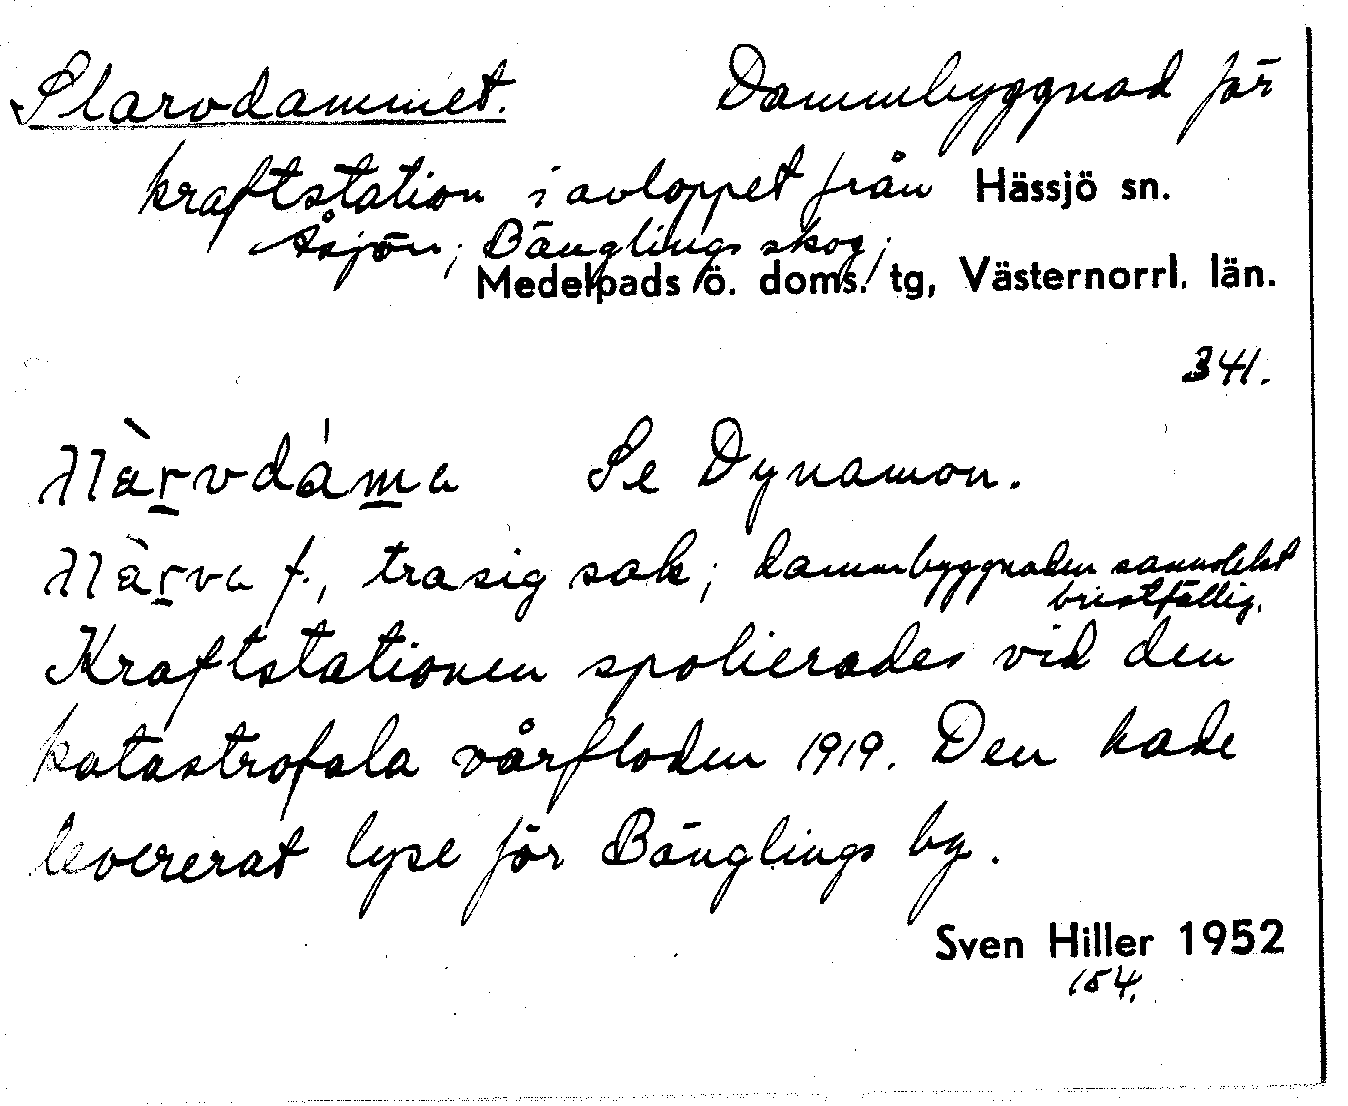 Slarvdammet. Dammbyggnad för
kraftstation i avloppet från Hässjö sn.
Åsjön; Bänglings skog;
Medelpads ö. doms. tg, Västernorrl. län.
341.
Se Dynamon.
f., trasig sak; dammbyggnaden sannolikt
bristfällig.
Kraftstationen spolierades vid den
katastrofala vårfloden 1919. Den hade
levererat lyse för Bänglings by.
Sven Hiller 1952
154.